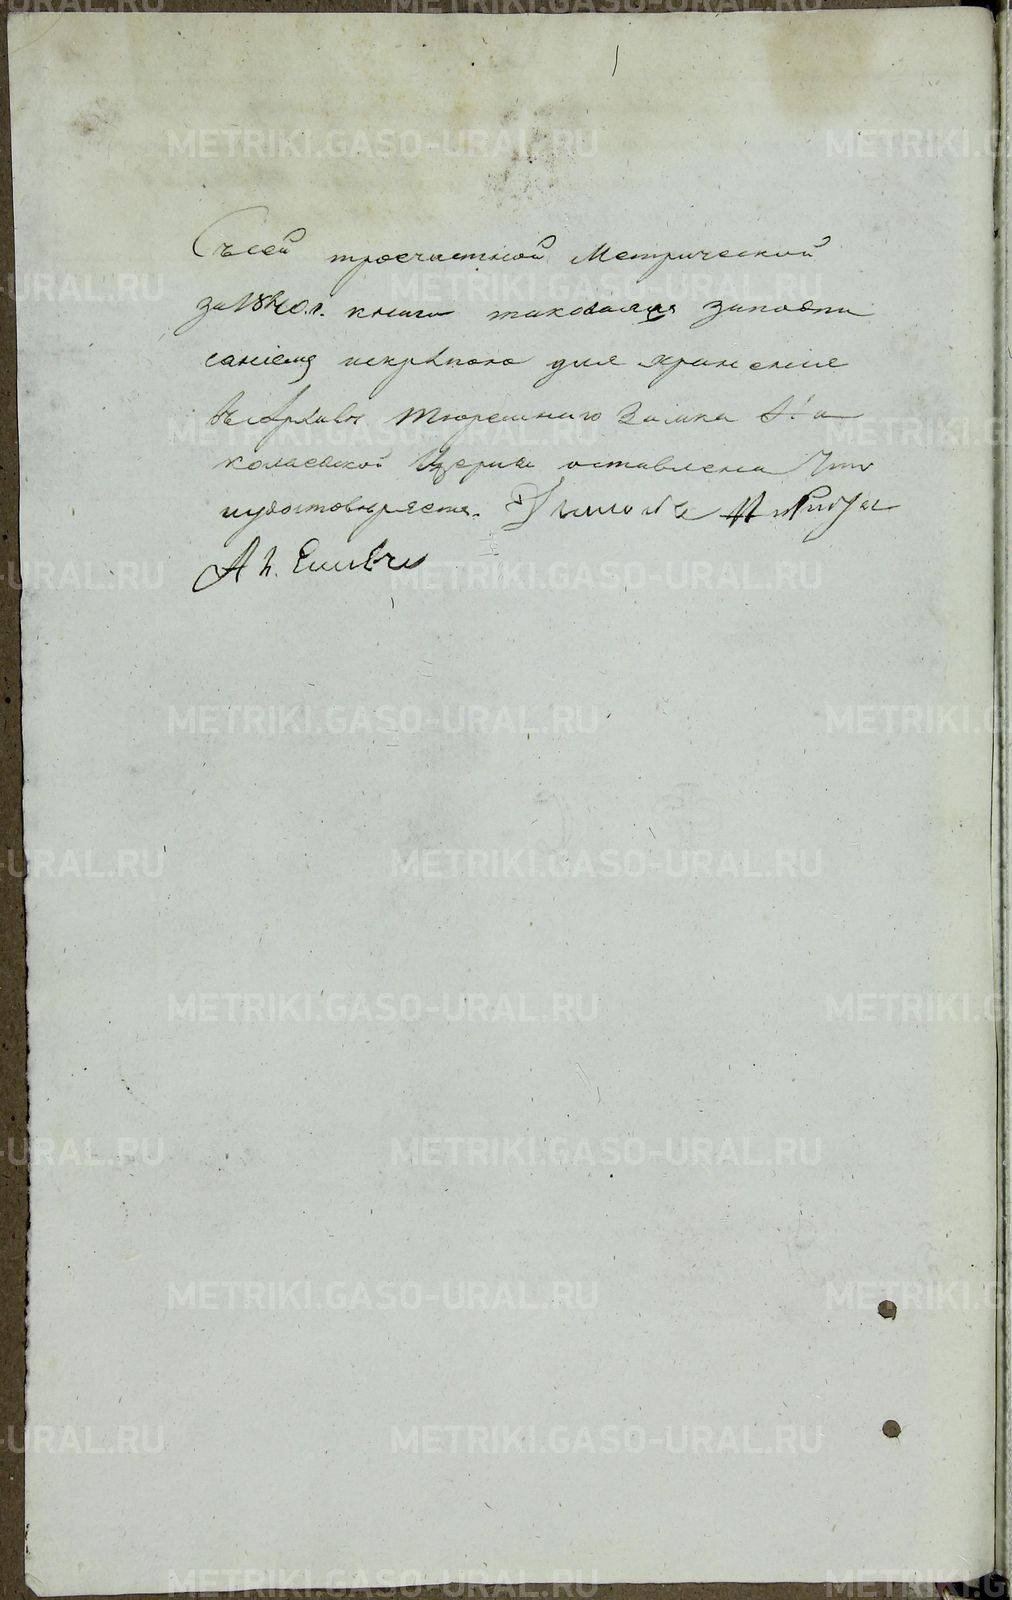 Съ сей троечастной Метрической
за 1840 г. книги таковая за подпи
саніемъ и скрѣпою для храненія
въ Архивѣ Тюремнаго Замка Ни
колаевской Церкви оставлена Что
и удостовѣряется.
METRIKI.GASO-URAL.RU